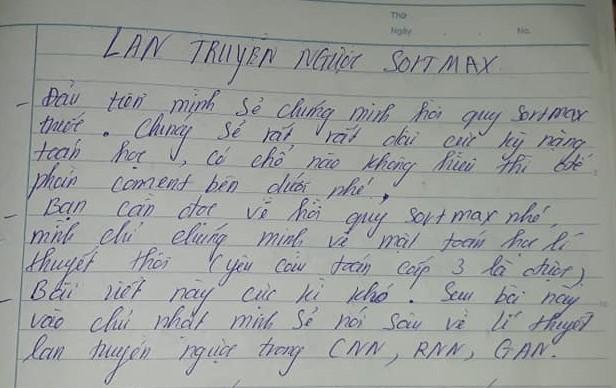 Thứ
Ngày No.
LAN TRUYỀN NGƯỢC SORTMAX
- Đầu tiên mình sẽ chứng minh hồi quy sortmax
trước. Chúng sẽ rất rất dài cực kỳ nặng
toán học, có chỗ nào không hiểu thì để
phần coment bên dưới nhé.
- Bạn cần đọc về hồi quy sortmax nhé,
mình chỉ chứng minh về mặt toán học lí
thuyết thôi (yêu cầu toán cấp 3 là được).
- Bài viết này cực kì khó. Sau bài này
vào chủ nhật mình sẽ nói sâu về lí thuyết
lan truyền ngược trong CNN, RNN, GAN.